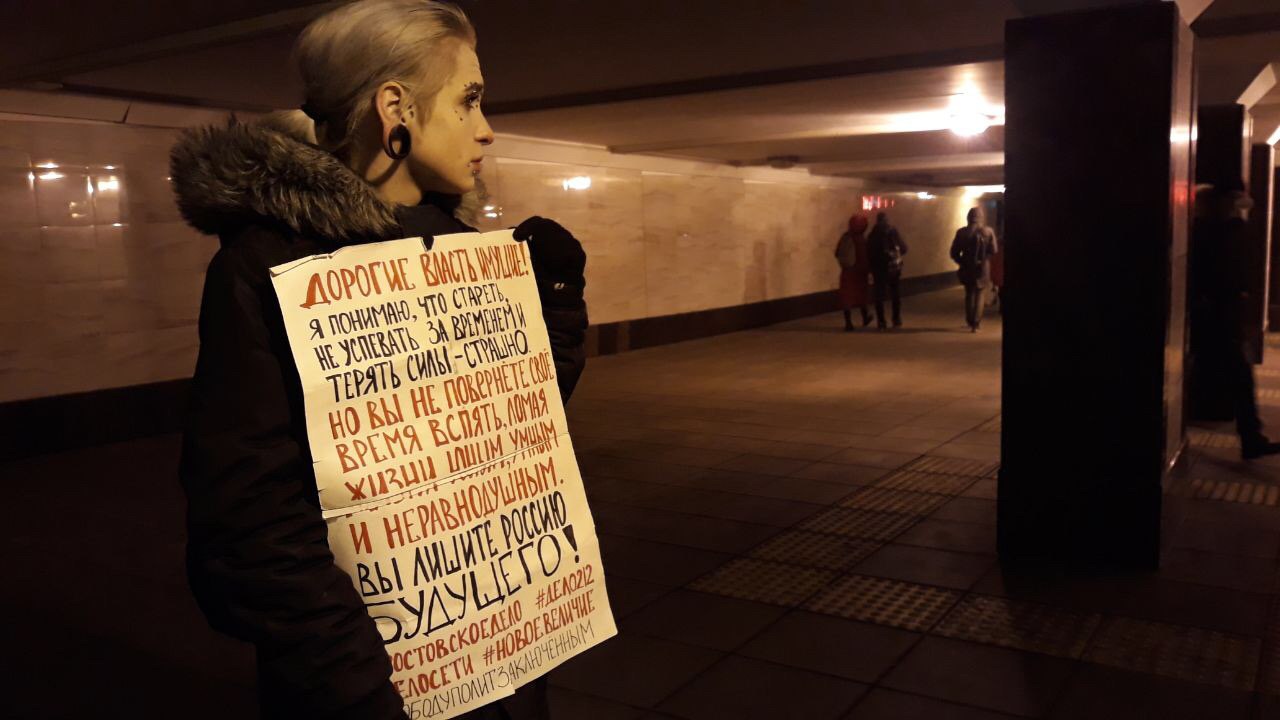 ДОРОГИЕ ВЛАСТЬ ИМУЩИЕ!
Я ПОНИМАЮ, ЧТО СТАРЕТЬ,
НЕ УСПЕВАТЬ ЗА ВРЕМЕНЕМ И
ТЕРЯТЬ СИЛЫ - СТРАШНО.
НО ВЫ НЕ ПОВЕРНЁТЕ СВОЁ
ВРЕМЯ ВСПЯТЬ, ЛОМАЯ
ЖИЗНИ ЮНЫМ, УМНЫМ
И НЕРАВНОДУШНЫМ.
ВЫ ЛИШИТЕ РОССИЮ
БУДУЩЕГО!
ОСТОВСКОЕДЕЛО #ДЕЛО212
ЕЛОСЕТИ #НОВОЕВЕЛИЧИЕ
ОБОДУПОЛИТЗАКЛЮЧЕННЫМ